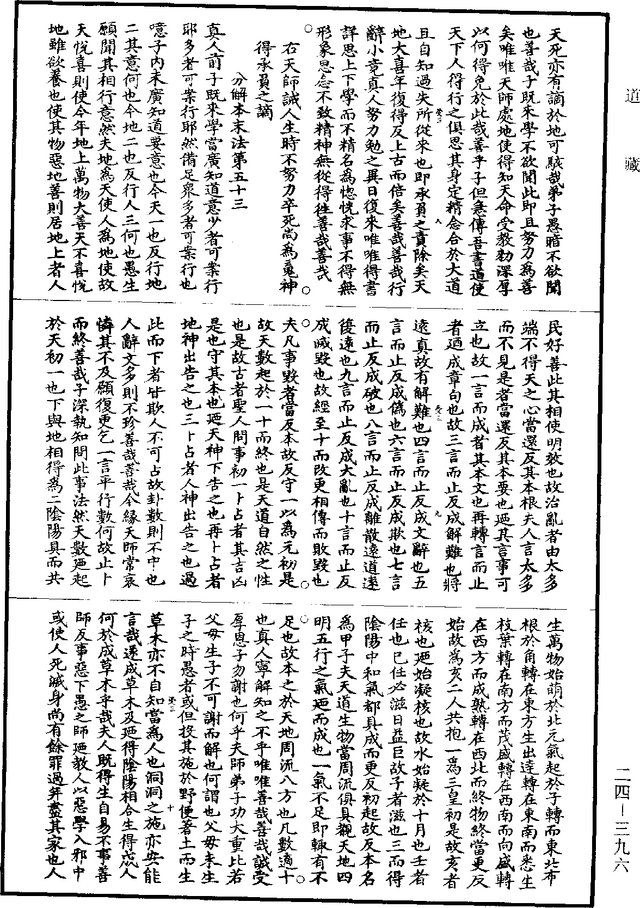 道藏
天死亦有謫於地可駭哉弟子愚暗不欲聞
也善哉子既來學不欲聞此即且努力為善
矣唯唯天師處地使得知天命受教勑深厚
以何得免於此哉善乎子但急傳吾書道使
天下人得行之俱思其身定精念合於大道
且自知過失所從來也即承負之責除矣天
地大喜年復得反上古而倍矣善哉善哉行
辭小竟真人努力勉之異日復來唯唯得書
詳思上下學而不精名為惚恍求事不得無
形象思念不致精神無從得往善哉善哉
右天師誡人生時不努力卒死尚為鬼神
得承負之謫
分解本末法第五十三
真人前子既來學當廣知道意少者可案行
耶多者可案行耶然備足眾多者可案行也
噫子內未廣知道要意也今天一也反行地
二其意何也今地二也反行人三何也愚生
願聞其相行意然夫地為天使人為地使故
天悅喜則使今年地上萬物大善天不喜悅
地雖欲養也使其物惡地善則居地上者人
民好善此其相使明效也故治亂者由太多
端不得天之心當還反其本根夫人言太多
而不見是者當還反其本要也迺其言事可
立也故一言而成者其本文也再轉言而止
者迺成章句也故三言而止反成解難也將
遠真故有解難也四言而止反成文辭也五
言而止反成偽也六言而止反成欺也七言
而止反成破也八言而止反成離散遠道遠
復遠也九言而止反成大亂也十言而止反
成滅毀也故經至十而改更相傳而敗毀也
夫凡事毀者當反本故反守一以為元初是
故天數起於一十而終也是天道自然之性
也是故古者聖人問事初一卜占者其吉凶
是也守其本也迺天神下告之也再卜占者
地神出告之也三卜占者人神出告之也過
此而下者皆欺人不可占故卦數則不中也
人辭文多則不珍善哉善哉今緣天師常哀
憐其不及願復更乞一言平行數何故止卜
而終善哉子深執知問此事法然天數迺起
於天初一也下與地相得為二陰陽具而共
生萬物始萌於北元氣起於子轉而東北布
根於角轉在東方生出達轉在東南而悉生
枝葉轉在南方而茂盛轉在西南而向盛轉
在西方而成熟轉在西北而終物終當更反
始故為亥二人共抱一為三皇初是故亥者
核也迺始凝核也故水始凝於十月也壬者
任也已任必滋日益巨故子者滋也三而得
陰陽中和氣都具成而更反初起故反本名
為甲子夫天道生物當周流俱具覩天地四
明五行之氣迺而成也一氣不足即輒有不
足也故本之於天地周流八方也凡數適十
也真人寧解知之不乎唯唯善哉善哉誠受
厚恩子勿謝也何乎夫師弟子功大重比若
父母生子不可謝而解也何謂也父母未生
子之時愚者或但投其施於野便著土而生
草木亦不自知當為人也洞洞之施亦安能
言哉遂成草木及迺得陰陽相合生得成人
何於成草木乎哉夫人既得生自易不事善
師反事惡下愚之師迺教人以惡學入邪中
或使人死滅身尚有餘罪過并盡其家也人
二四—三九六